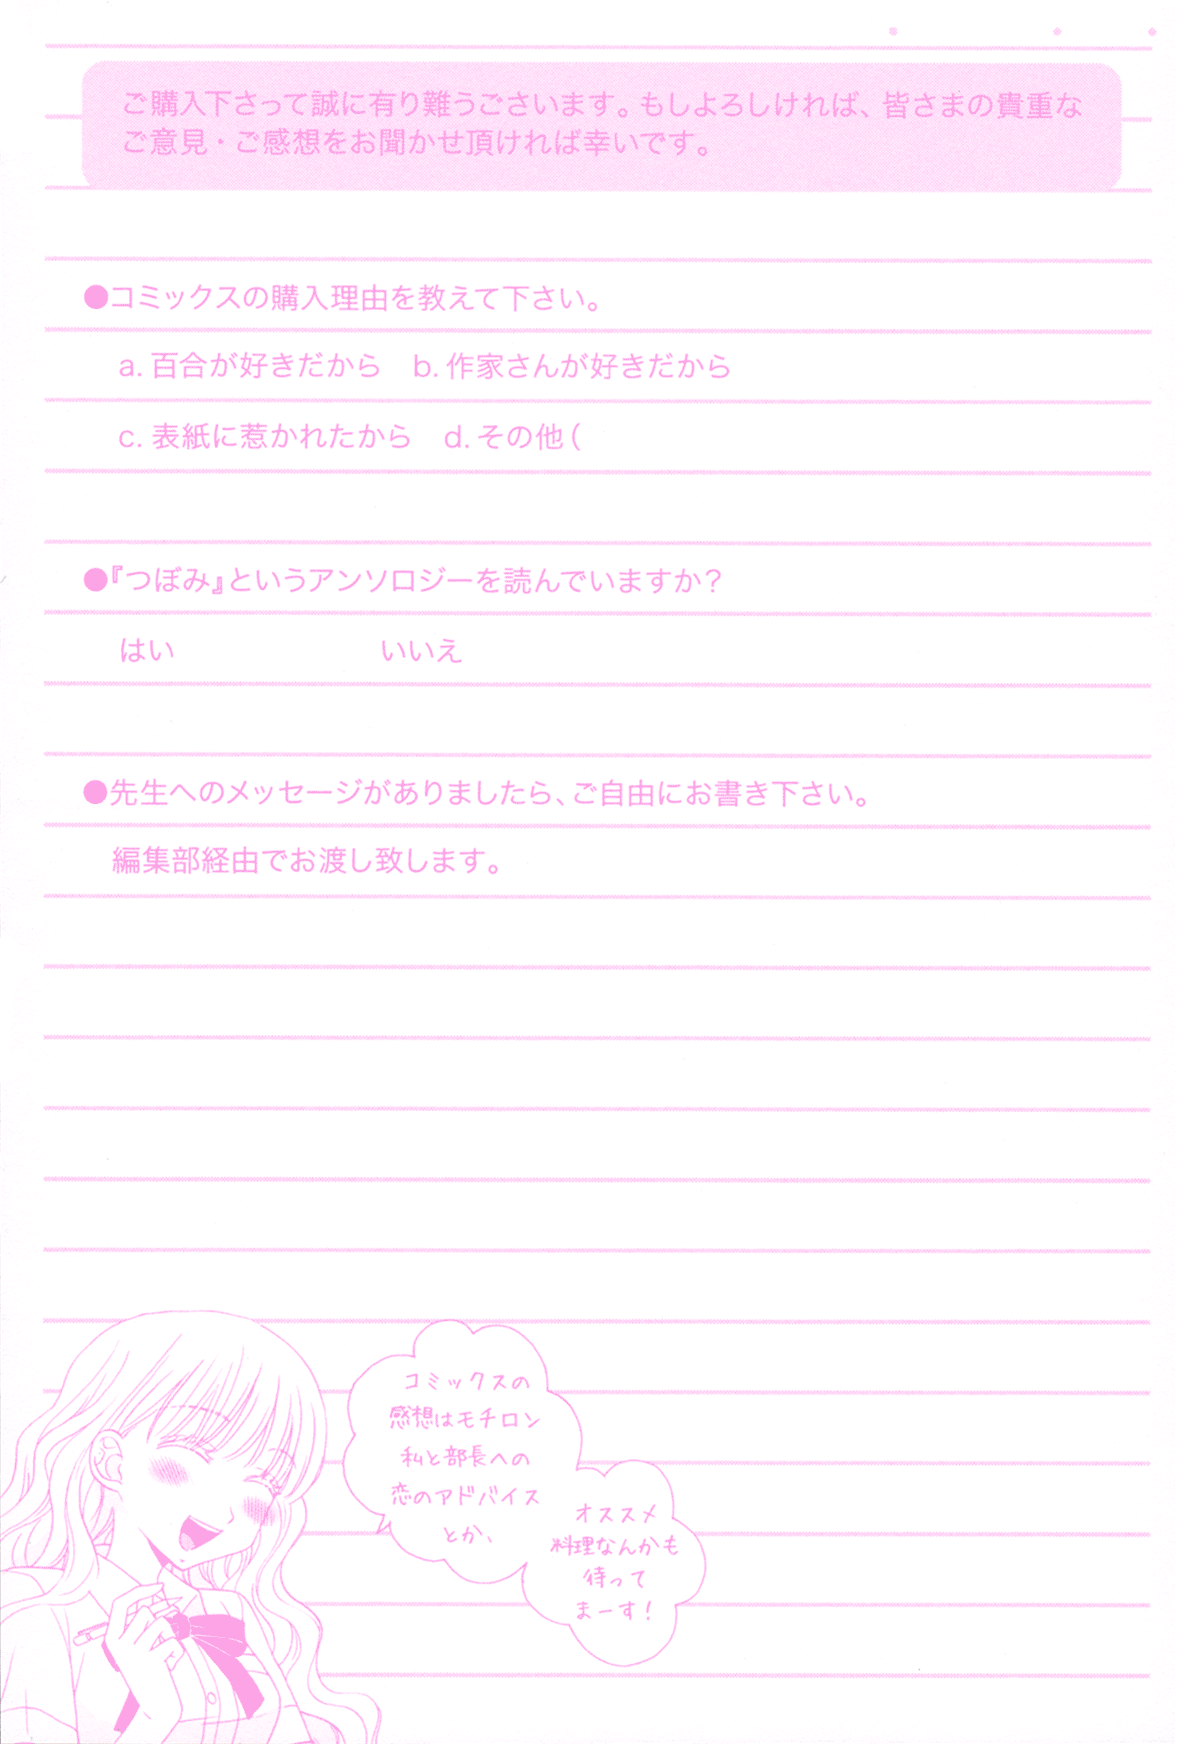 ご購入下さって誠に有り難うございます。もしよろしければ、皆さまの貴重な
ご意見・ご感想をお聞かせ頂ければ幸いです。
●コミックスの購入理由を教えて下さい。
a. 百合が好きだから　b. 作家さんが好きだから
c. 表紙に惹かれたから　d. その他 (
●『つぼみ』というアンソロジーを読んでいますか？
はい　いいえ
●先生へのメッセージがありましたら、ご自由にお書き下さい。
編集部経由でお渡し致します。
コミックスの
感想はモチロン
私と部長への
恋のアドバイス
とか、
オススメ
料理なんかも
待って
まーす！